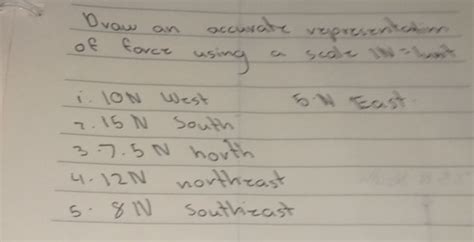 Draw an accurate representation
of force using a scale 1N = 1unit
1. 10N West 5 N East
2. 15 N South
3. 7.5 N north
4. 12N northeast
5. 8N Southeast